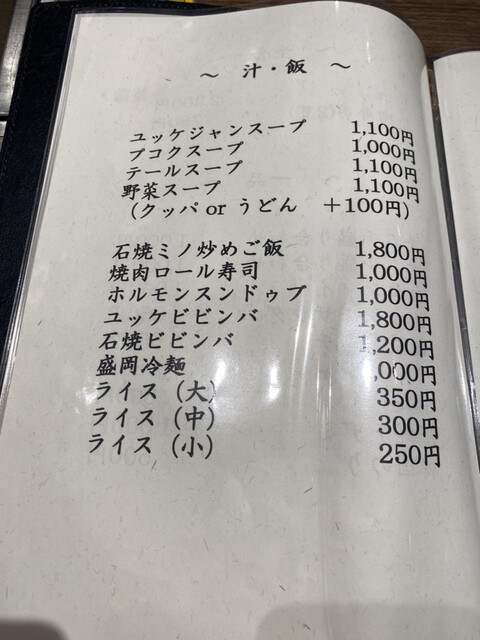 ～ 汁・飯 ～
ユッケジャンスープ 1,100円
プコクスープ 1,000円
テールスープ 1,100円
野菜スープ 1,100円
(クッパ or うどん ＋100円)
石焼ミノ炒めご飯 1,800円
焼肉ロール寿司 1,000円
ホルモンスンドゥブ 1,000円
ユッケビビンバ 1,800円
石焼ビビンバ 1,200円
盛岡冷麺 ,000円
ライス (大) 350円
ライス (中) 300円
ライス (小) 250円